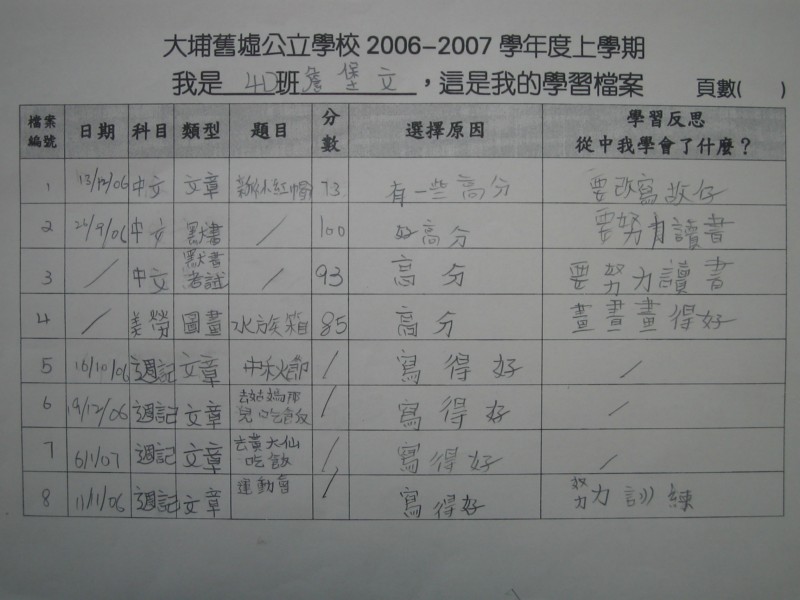 大埔舊墟公立學校 2006-2007 學年度上學期
我是 4D班詹堡文，這是我的學習檔案 頁數( )
檔案編號 日期 科目 類型 題目 分數 選擇原因 學習反思 從中我學會了什麼？
1 13/12/06 中文 文章 新小紅帽 73 有一些高分 要改寫故好
2 26/9/06 中文 默書 / 100 好高分 要努力讀書
3 / 中文 默書考試 / 93 高分 要努力讀書
4 / 美勞 圖畫 水族箱 85 高分 畫畫畫得好
5 16/10/06 週記 文章 中秋節 / 寫得好 /
6 19/12/06 週記 文章 去姑媽那兒吃飯 / 寫得好 /
7 6/1/07 週記 文章 去黃大仙吃飯 / 寫得好 /
8 11/11/06 週記 文章 運動會 / 寫得好 努力訓練